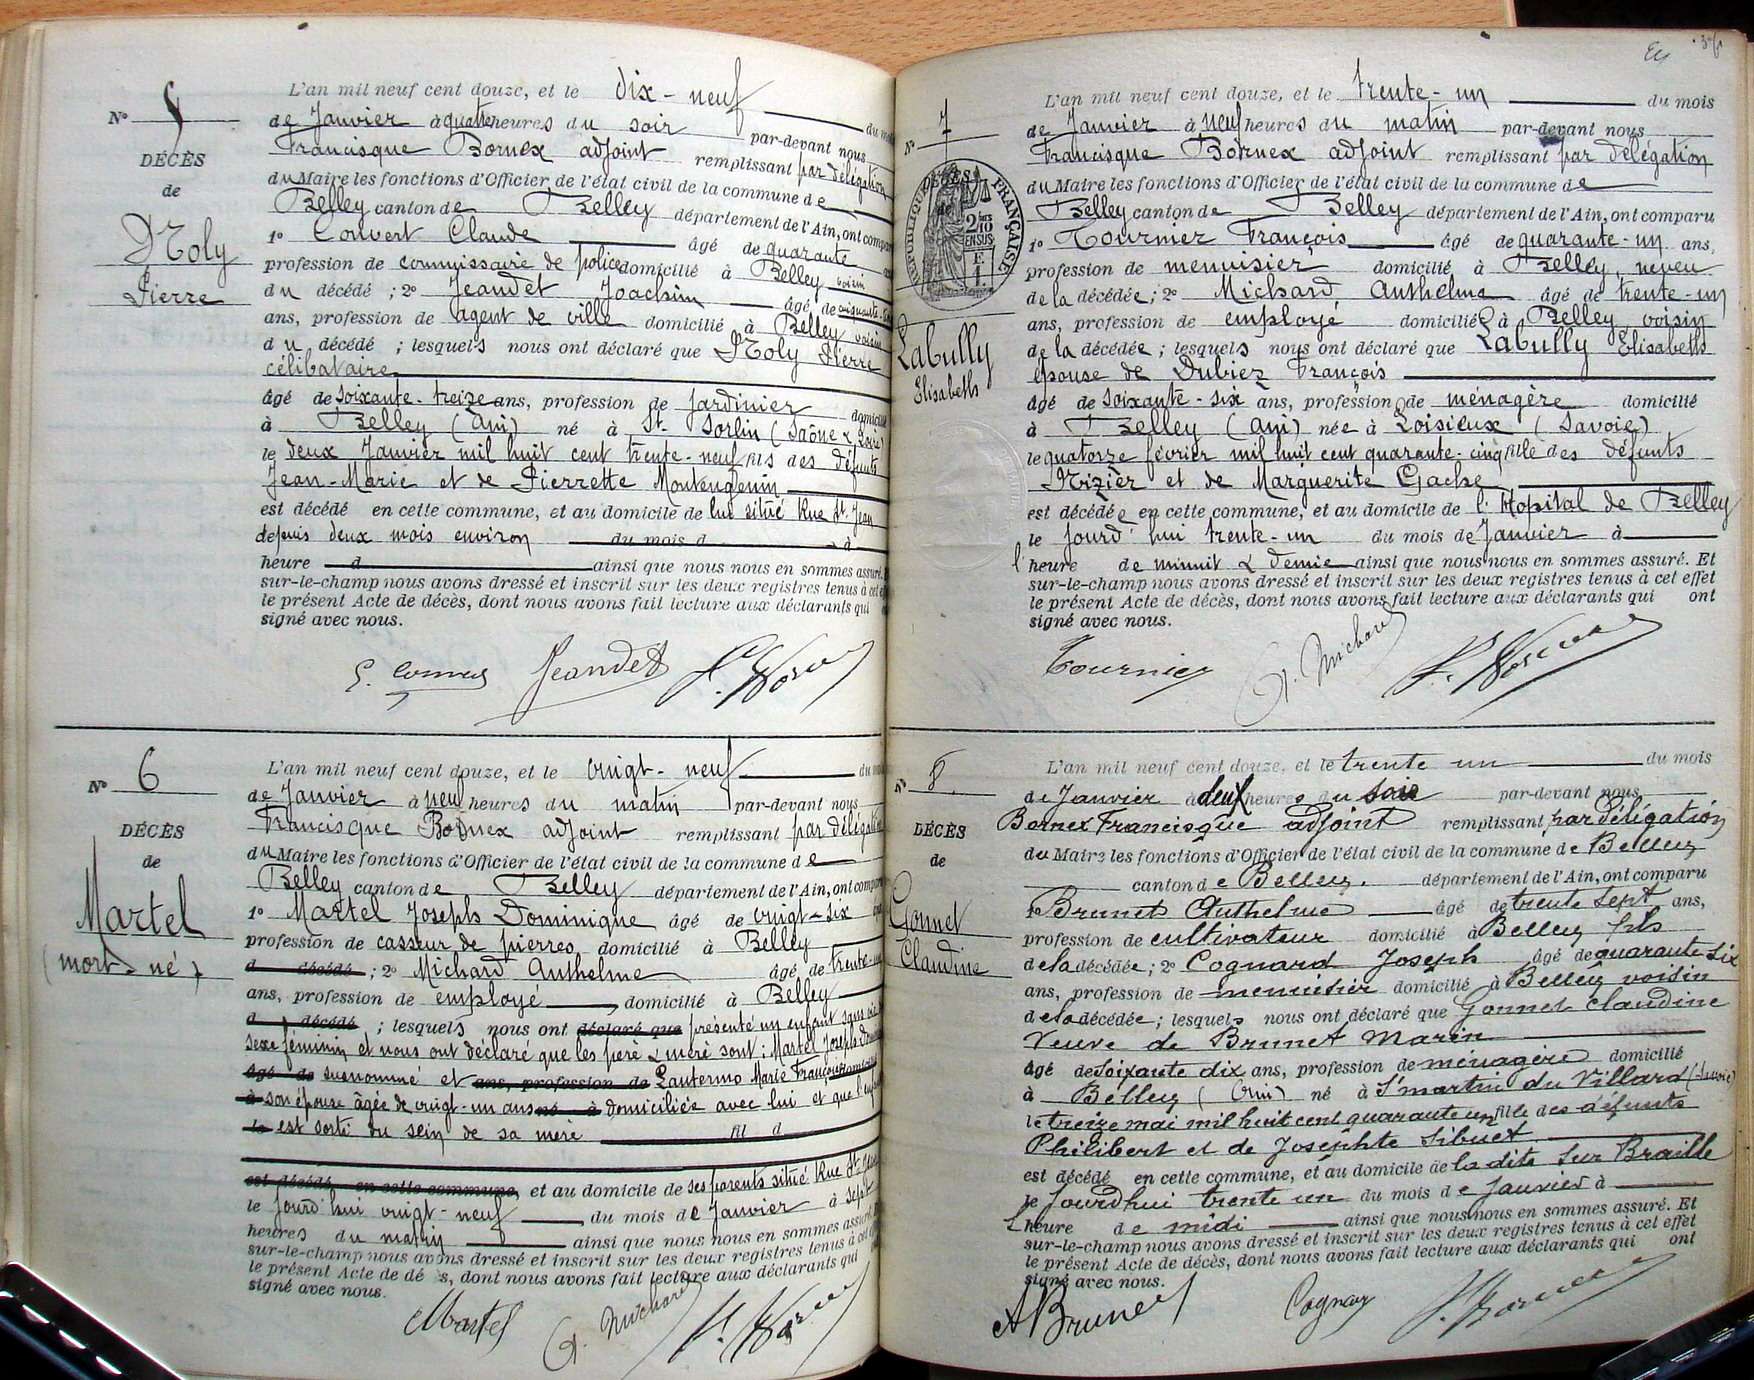 N° 5
DÉCÈS
de
Noly
Pierre
L'an mil neuf cent douze, et le dix-neuf du
de Janvier à quatre heures du soir par-devant nous
Francisque Bornex adjoint remplissant par délégation
du Maire les fonctions d'Officier de l'état civil de la commune de
Belley canton de Belley département de l'Ain, ont compar
1° Convert Claude âgé de quarante
profession de commissaire de police domicilié à Belley voisin
du décédé ; 2° Jeandet Joachim âgé de
ans, profession de agent de ville domicilié à Belley voisin
du décédé ; lesquels nous ont déclaré que Noly Pierre
célibataire
âgé de soixante-treize ans, profession de jardinier domicilié
à Belley (Ain) né à St Sorlin (Saône & Loire)
le deux Janvier mil huit cent trente-neuf fils des défunts
Jean-Marie et de Pierrette Montangerin
est décédé en cette commune, et au domicile de lui situé Rue St Jean
depuis deux mois environ du mois d à
heure d ainsi que nous nous en sommes assuré.
sur-le-champ nous avons dressé et inscrit sur les deux registres tenus à cet
le présent Acte de décès, dont nous avons fait lecture aux déclarants qui
signé avec nous.
Jeandet
N° 6
DÉCÈS
de
Martel
(mort-né)
L'an mil neuf cent douze, et le vingt-neuf du
de Janvier à neuf heures du matin par-devant nous
Francisque Bornex adjoint remplissant par délégation
du Maire les fonctions d'Officier de l'état civil de la commune de
Belley canton de Belley département de l'Ain, ont compar
1° Martel Joseph Dominique âgé de vingt-six
profession de casseur de pierres domicilié à Belley
d décédé ; 2° Michard Anthelme âgé de trente-un
ans, profession de employé domicilié à Belley
d décédé ; lesquels nous ont déclaré que présenté un enfant sans vie
sexe féminin et nous ont déclaré que les père & mère sont : Martel Joseph
âgé de susnommé et ans, profession de Lantermo Marie Françoise domicilié
à son épouse âgée de vingt-un ans né à domiciliée avec lui et que l'enf
le est sorti du sein de sa mère fil d
est décédé en cette commune, et au domicile de ses parents situé Rue St Jean
le jourd'hui vingt-neuf du mois de Janvier à sept
heures du matin ainsi que nous nous en sommes assuré
sur-le-champ nous avons dressé et inscrit sur les deux registres tenus à cet
le présent Acte de décès, dont nous avons fait lecture aux déclarants qui
signé avec nous.
Martel A. Michard
N° 7
DÉCÈS
de
RÉPUBLIQUE FRANÇAISE
2/10 EN SUS
Labully
Elisabeth
L'an mil neuf cent douze, et le trente-un du mois
de Janvier à neuf heures du matin par-devant nous
Francisque Bornex adjoint remplissant par délégation
du Maire les fonctions d'Officier de l'état civil de la commune de
Belley canton de Belley département de l'Ain, ont comparu
1° Tournier François âgé de quarante-un ans,
profession de menuisier domicilié à Belley, neveu
de la décédée ; 2° Michard Anthelme âgé de trente-un
ans, profession de employé domicilié à Belley voisin
de la décédée ; lesquels nous ont déclaré que Labully Elisabeth
épouse de Dubiez François
âgé de soixante-six ans, profession de ménagère domicilié
à Belley (Ain) née à Loisieux (Savoie)
le quatorze février mil huit cent quarante-cinq fille des défunts
Nizier et de Marguerite Gache
est décédée en cette commune, et au domicile de l'Hopital de Belley
le jourd'hui trente-un du mois de Janvier à
l'heure de minuit & demie ainsi que nous nous en sommes assuré. Et
sur-le-champ nous avons dressé et inscrit sur les deux registres tenus à cet effet
le présent Acte de décès, dont nous avons fait lecture aux déclarants qui ont
signé avec nous.
Tournier A. Michard
N° 8
DÉCÈS
de
Gonnet
Claudine
L'an mil neuf cent douze, et le trente un du mois
de Janvier à deux heures du soir par-devant nous
Bornex Francisque adjoint remplissant par Délégation
du Maire les fonctions d'Officier de l'état civil de la commune de Belley
canton de Belley. département de l'Ain, ont comparu
1° Brunet Anthelme âgé de trente sept ans,
profession de cultivateur domicilié à Belley fils
de la décédée ; 2° Cognard Joseph âgé de quarante-six
ans, profession de menuisier domicilié à Belley voisin
de la décédée ; lesquels nous ont déclaré que Gonnet Claudine
Veuve de Brunet Marin
âgé de soixante dix ans, profession de ménagère domicilié
à Belley (Ain) né à St martin du Villard (Savoie)
le treize mai mil huit cent quarante un fille des défunts
Philibert et de Josephte Sibuet
est décédé en cette commune, et au domicile de la dite Sur Braille
le jourdhui trente un du mois de Janvier à
L'heure de midi ainsi que nous nous en sommes assuré. Et
sur-le-champ nous avons dressé et inscrit sur les deux registres tenus à cet effet
le présent Acte de décès, dont nous avons fait lecture aux déclarants qui ont
signé avec nous.
A Brunet Cognard